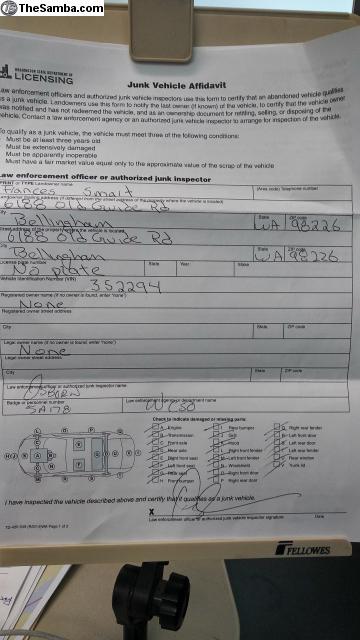 TheSamba.com
WASHINGTON STATE DEPARTMENT OF
LICENSING
Junk Vehicle Affidavit
Law enforcement officers and authorized junk vehicle inspectors use this form to certify that an abandoned vehicle qualifies
as a junk vehicle. Landowners use this form to notify the last owner (if known) of the vehicle, to certify that the vehicle owner
was notified and has not redeemed the vehicle, and as ownership document for retitling, selling, or disposing of the
vehicle. Contact a law enforcement agency or an authorized junk vehicle inspector to arrange for inspection of the vehicle.
To qualify as a junk vehicle, the vehicle must meet three of the following conditions:
Must be at least three years old
Must be extensively damaged
Must be apparently inoperable
Must have a fair market value equal only to the approximate value of the scrap of the vehicle
Law enforcement officer or authorized junk inspector
PRINT or TYPE Landowner name
(Area code) Telephone number
Frances Smart
Landowner mailing address (if different from the street address of the property where the vehicle is located)
6188 Old Guide Rd
City State ZIP code
Bellingham WA 98226
Street address of the property where the vehicle is located
6188 Old Guide Rd
City State ZIP code
Bellingham WA 98226
License plate number State Year Make
No plate
Vehicle Identification Number (VIN)
352294
Registered owner name (if no owner is found, enter "none")
None
Registered owner street address
City State ZIP code
Legal owner name (if no owner is found, enter "none")
None
Legal owner street address
City State ZIP code
Law enforcement officer or authorized junk inspector name
Osborn
Badge or personnel number Law enforcement agency or department name
5A178 WCSO
Check to indicate damaged or missing parts:
A Engine I Rear bumper Q Right rear fender
B Transmission J Grill R Left front door
C Front side K Hood S Left rear door
D Rear side L Right front fender T Left rear fender
E Right front seat M Left front fender U Rear window
F Left front seat N Windshield V Trunk lid
G Rear seat O Right front door
H Front bumper P Right rear door
I have inspected the vehicle described above and certify that it qualifies as a junk vehicle.
X
Law enforcement officer or authorized junk vehicle inspector signature Date
FELLOWES